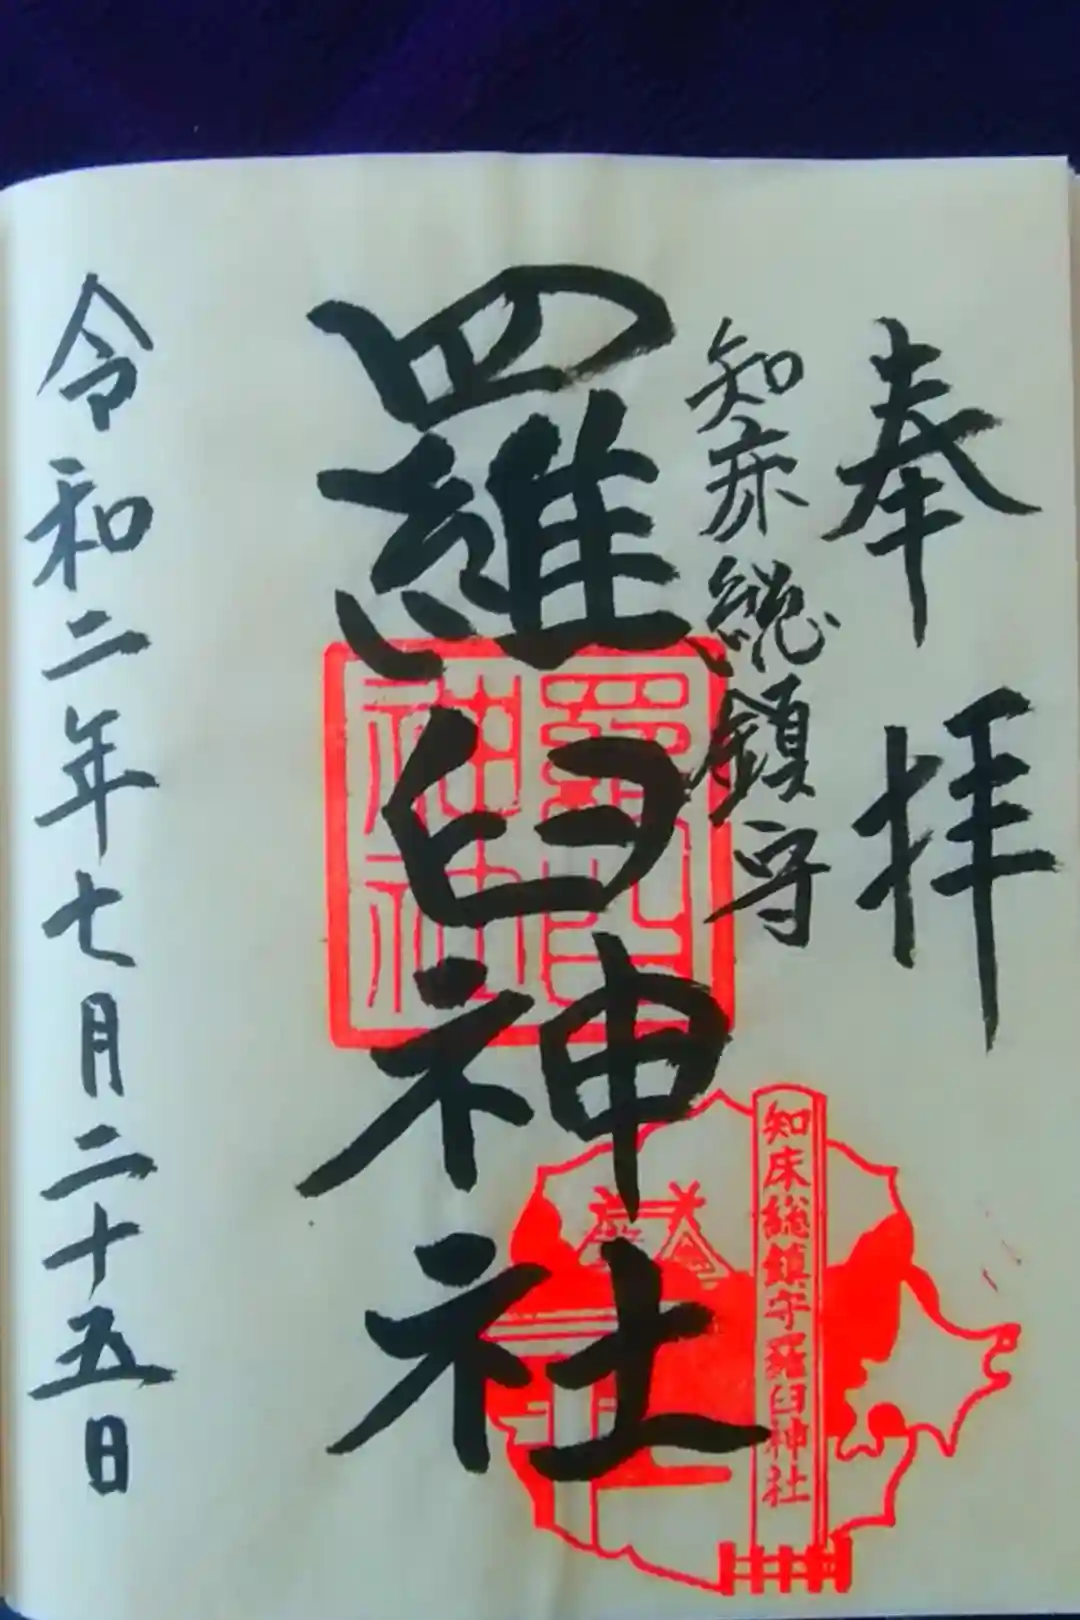 奉拝
知床総鎮守
羅臼神社
令和二年七月二十五日
羅臼
神社
知床総鎮守羅臼神社